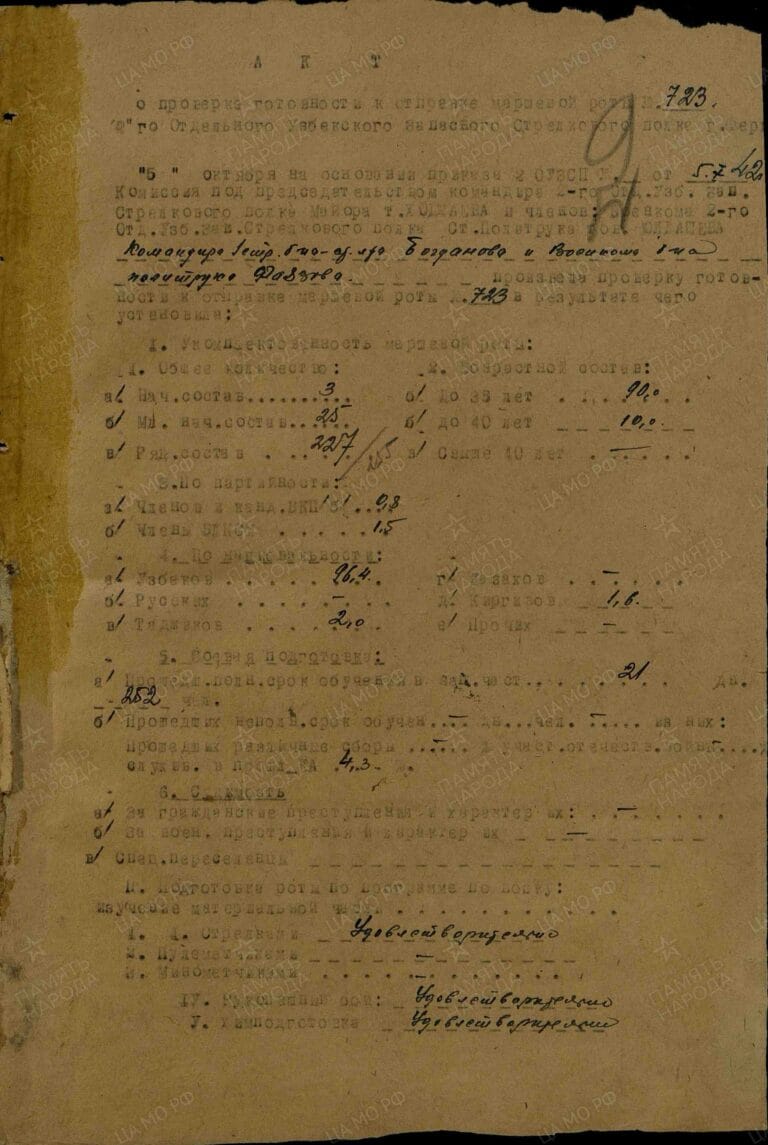 А К Т
о проверке готовности к отправке маршевой роты №.723.
го Отдельного Узбекского Запасного Стрелкового полка г.
"5" октября на основании приказа 2 ОУЗСП № от 5.7.42
Комиссия под председательством командира 2-го Отд.Узб. Зап.
Стрелкового полка Майора т. и членов: Военкома 2-го
Отд.Узб.Зап.Стрелкового полка Ст.Политрука тов. ЮЛДАШЕВА
Командира 1 стр. б-на Богданова и Военкома б-на
политрука Фаязова произвела проверку готов-
ности к отправке маршевой роты №.723 в результате чего
установила:
I. Укомплектованность маршевой роты:
1. Общее количество:
2. Возрастной состав:
а/ Нач.состав.......... 3
б/ До 35 лет . . 90,0 . .
б/ Мл. нач.состав... 25
б/ до 40 лет _ _ 10,0 .
в/ Ряд.состав . . . 227/255
в/ Свыше 40 лет . . — . . .
3.По партийности:
а/ Членов и канд.ВКП/б/ ... 0,8
б/ Члены ВЛКСМ . . . . . 1,5
4. По национальности:
а/ Узбеков . . . . . 96,4.
г/ Казахов . . — . . .
б/ Русских . . . . . —
д/ Киргизов _ _ 1,6.
в/ Таджиков . . . . . 2,0
е/ Прочих _ _ — _ _
5. Боевая подготовка:
а/ Прошедш.полн.срок обучения в зап.част. . . . . 21 . . . дн.
252 чел.
б/ Прошедших неполн.срок обучен....— дн...чел. —..... из них:
прошедших различные сборы ...—.. и участ.отечеств.войны—....
служив. в РККА 4,3 -
6. Судимость
а/ За гражданские преступления и характер их: . . — . . . .
б/ За воен. преступления и характер их _ _ — _ _
в/ Спец.переселенцы _ _ _ _ _ _
II. Подготовка роты по программе по полку:
изучение материальной части . . . . . . . .
1. 1. Стрелками Удовлетворительно
2. Пулеметчиками _ _ — _ _
3. Минометчиками . . . — . . .
IУ. Рукопашный бой: Удовлетворительно
У. Химподготовка Удовлетворительно
ПАМЯТЬ НАРОДА
ЦА МО РФ